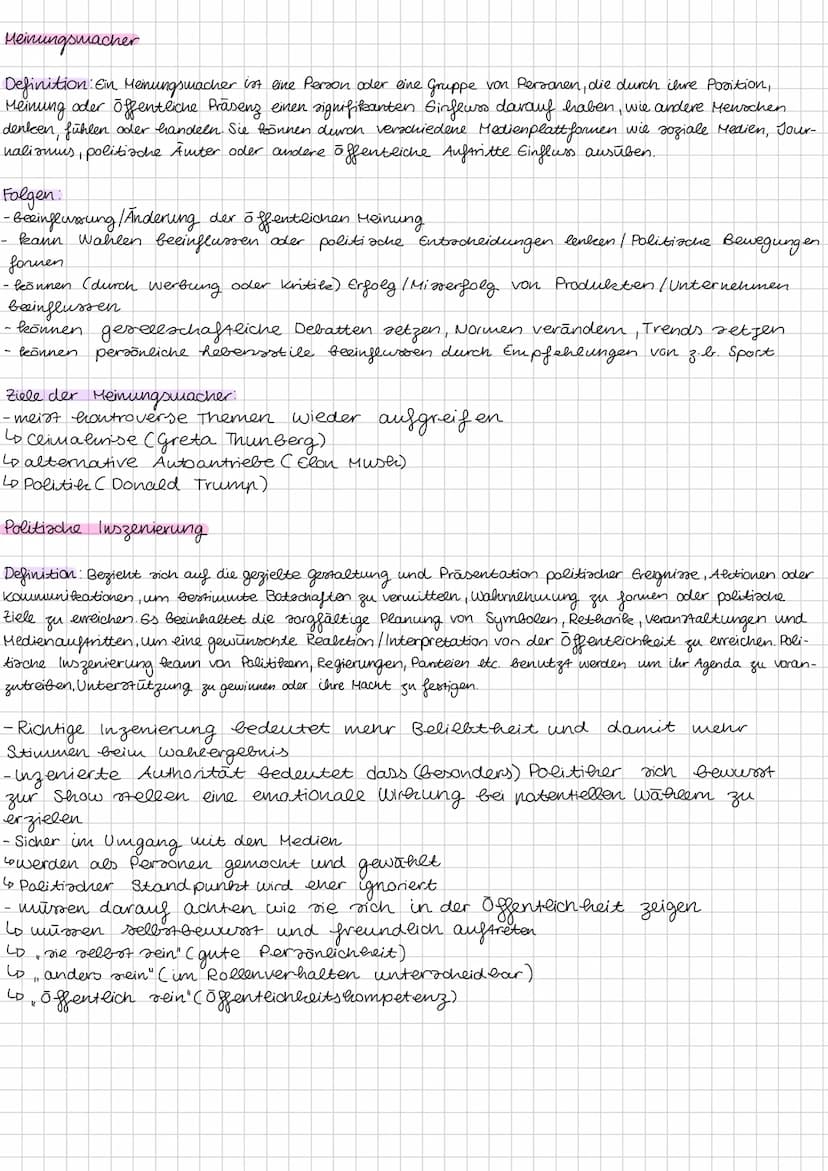 Meinungsmacher
Definition: Ein Meinungsmacher ist eine Person oder eine Gruppe von Personen, die durch ihre Position,
Meinung oder Öffentliche Präsenz einen signifikanten Einfluss darauf haben, wie andere Menschen
denken, fühlen oder handeln. Sie können durch verschiedene Medienplattformen wie soziale Medien, Jour-
nalismus, politische Ämter oder andere öffentliche Auftritte Einfluss ausüben.
Folgen:
- Beeinflussung/Änderung der öffentlichen Meinung
- kann Wahlen beeinflussen oder politische Entscheidungen lenken / Politische Bewegungen
formen
- können (durch Werbung oder Kritik) Erfolg/Misserfolg von Produkten/Unternehmen
beeinflussen
- können gesellschaftliche Debatten setzen, Normen verändern, Trends setzen
- können persönliche Lebensstile beeinflussen durch Empfehlungen von z.b. Sport
Ziele der Meinungsmacher:
- meist kontroverse Themen wieder aufgreifen
↳ Climakrise (Greta Thunberg)
↳ alternative Autoantriebe (Elon Musk)
↳ Politik (Donald Trump)
Politische Inszenierung
Definition: Bezieht sich auf die gezielte gestaltung und Präsentation politischer Ereignisse, Aktionen oder
Kommunikationen, um bestimmte Botschaften zu vermitteln, Wahrnehmung zu formen oder politische
Ziele zu erreichen. Es beinhaltet die sorgfältige Planung von Symbolen, Rethorik, Veranstaltungen und
Medienauftritten, um eine gewünschte Reaktion/Interpretation von der Öffentlichkeit zu erreichen. Poli-
tische Inszenierung kann von Politikern, Regierungen, Parteien etc. benutzt werden um ihr Agenda zu voran-
zutreiben, Unterstützung zu gewinnen oder ihre Macht zu festigen.
- Richtige Inzenierung bedeutet mehr Beliebtheit und damit mehr
Stimmen beim Wahlergebnis
- Inzenierte Authorität bedeutet dass (besonders) Politiker sich bewusst
zur Show stellen eine emotionale Wirkung bei potentiellen Wählern zu
erzielen
- Sicher im Umgang mit den Medien
↳ werden als Personen gemocht und gewählt
↳ Politischer Standpunkt wird eher ignoriert
- müssen darauf achten wie sie sich in der Öffentlichkeit zeigen
↳ müssen selbstbewusst und freundlich auftreten
↳ „sie selbst sein" (gute Persönlichkeit)
↳ „anders sein" (im Rollenverhalten unterscheidbar)
↳ „öffentlich sein" (Öffentlichkeitskompetenz)